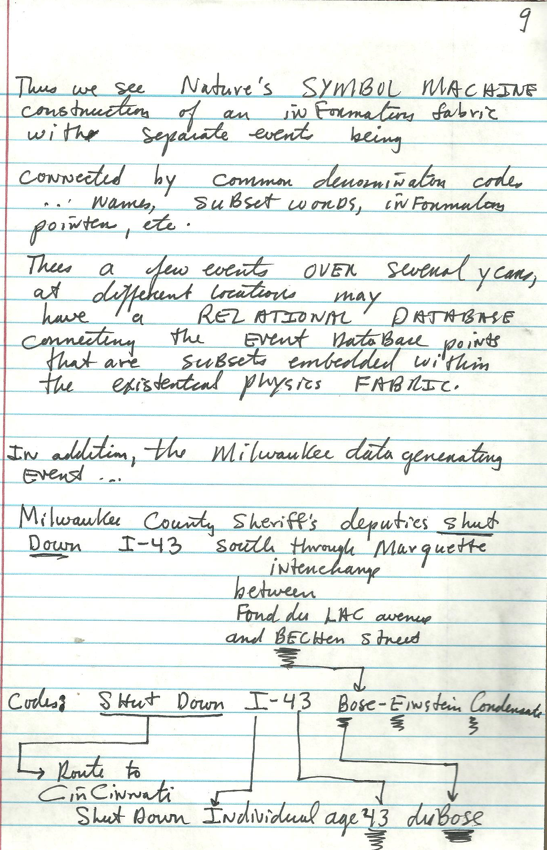 9
Thus we see Nature's SYMBOL MACHINE
construction of an inFormation fabric
with separate events being
connected by common denominator codes
... names, subset words, inFormation
pointer, etc.
Thus a few events OVER several years,
at different locations may
have a RELATIONAL DATABASE
connecting the Event DataBase points
that are subsets embedded within
the existential physics FABRIC.
In addition, the Milwaukee data generating
Event ...
Milwaukee County Sheriff's deputies shut
Down I-43 south through Marquette
interchange
between
Fond du LAC avenue
and BECHer street
Codes: Shut Down I-43 Bose-Einstein Condensate
Route to
CinCinnati
Shut Down Individual age 43 duBose